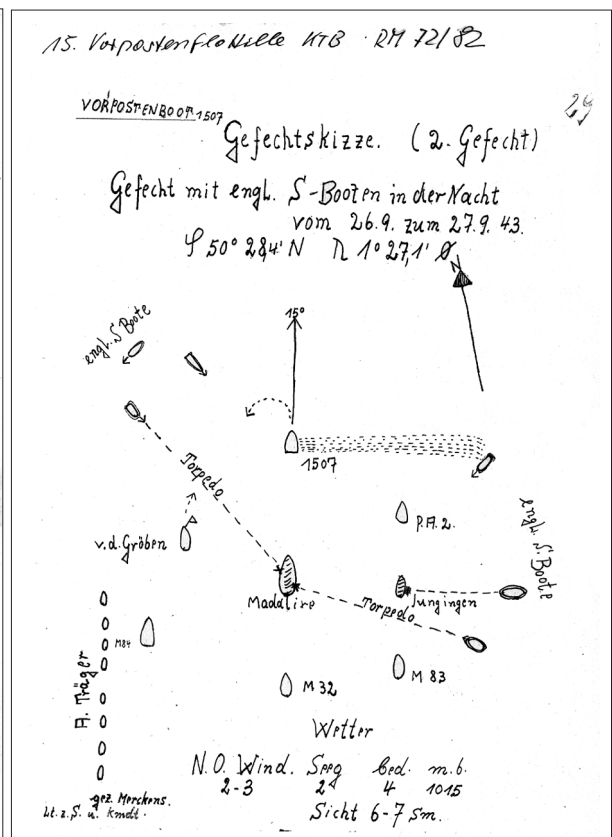 15. Vorpostenflottille KTB · RM 72/82
29
VORPOSTENBOOT 1507
Gefechtskizze. (2. Gefecht)
Gefecht mit engl. S-Booten in der Nacht
vom 26.9. zum 27.9. 43.
φ 50° 28,4' N λ 1° 27,1' O
N
15°
engl. S Boote
1507
Torpedo
P.A. 2.
v.d. Gröben
engl. S. Boote
Madalire
Torpedo
Jungingen
M84
A. Träger
M 32
M 83
Wetter
N.O. Wind. Seeg bed. m.b.
2-3 2 4 1015
Sicht 6-7 Sm.
gez. Merckens.
Lt. z. S. u. Kmdt.